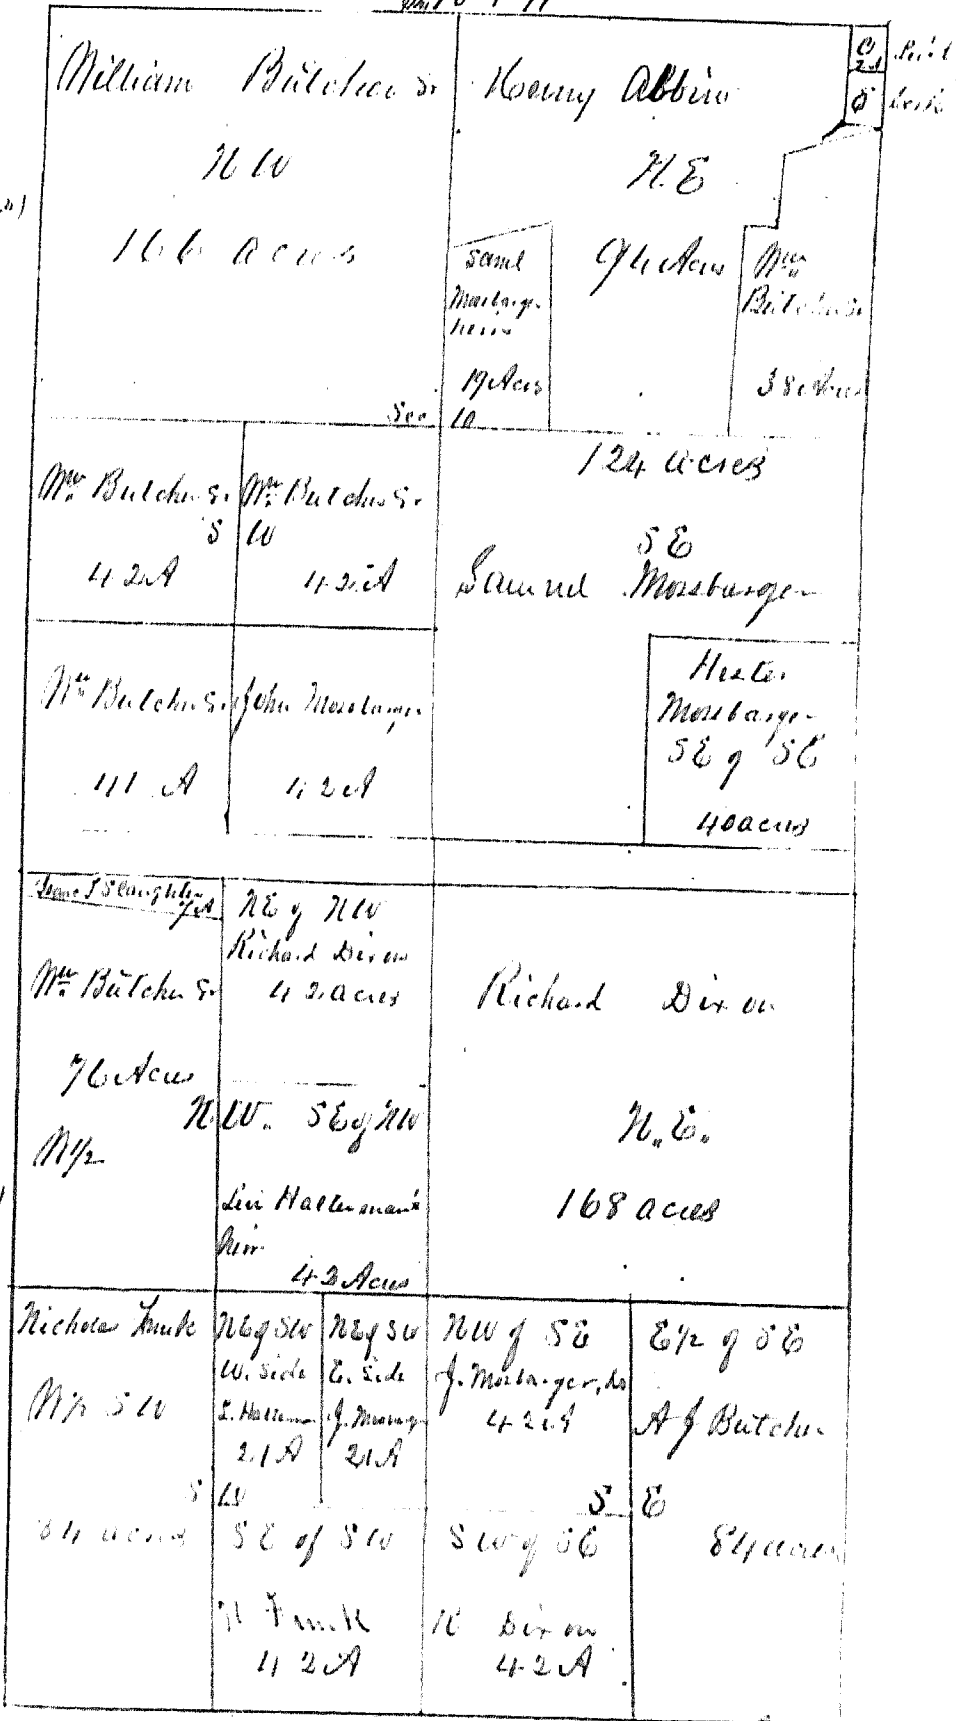 William Butcher Sr
N W
166 acres
Henry Abbin
N.E
94 Acres
Saml
Mossbarger
heirs
19 Acres
Wm
Butcher Sr
38 Acres
Sec 10
Wm Butcher Sr
42 A
Wm Butcher Sr
42 A
S W
124 acres
S E
Samuel Mossbarger
Wm Butcher Sr
41 A
John Mossbarger
42 A
Hester
Mossbarger
SE of SE
40 acres
Isaac J Slaughter
7 A
Wm Butcher Sr
76 Acres
W 1/2
NE of NW
Richard Dixon
42 acres
N W. SE of NW
Levi Halterman's
heir
42 Acres
Richard Dixon
N.E.
168 acres
Nicholas Funk
W 1/2 S W
84 acres
NE of SW
W. Side
21 A
NE of SW
E. Side
21 A
S W
NW of SE
42 A
E 1/2 of SE
A J Butcher
S E
84 acres
SE of SW
N Funk
42 A
SW of SE
R Dixon
42 A